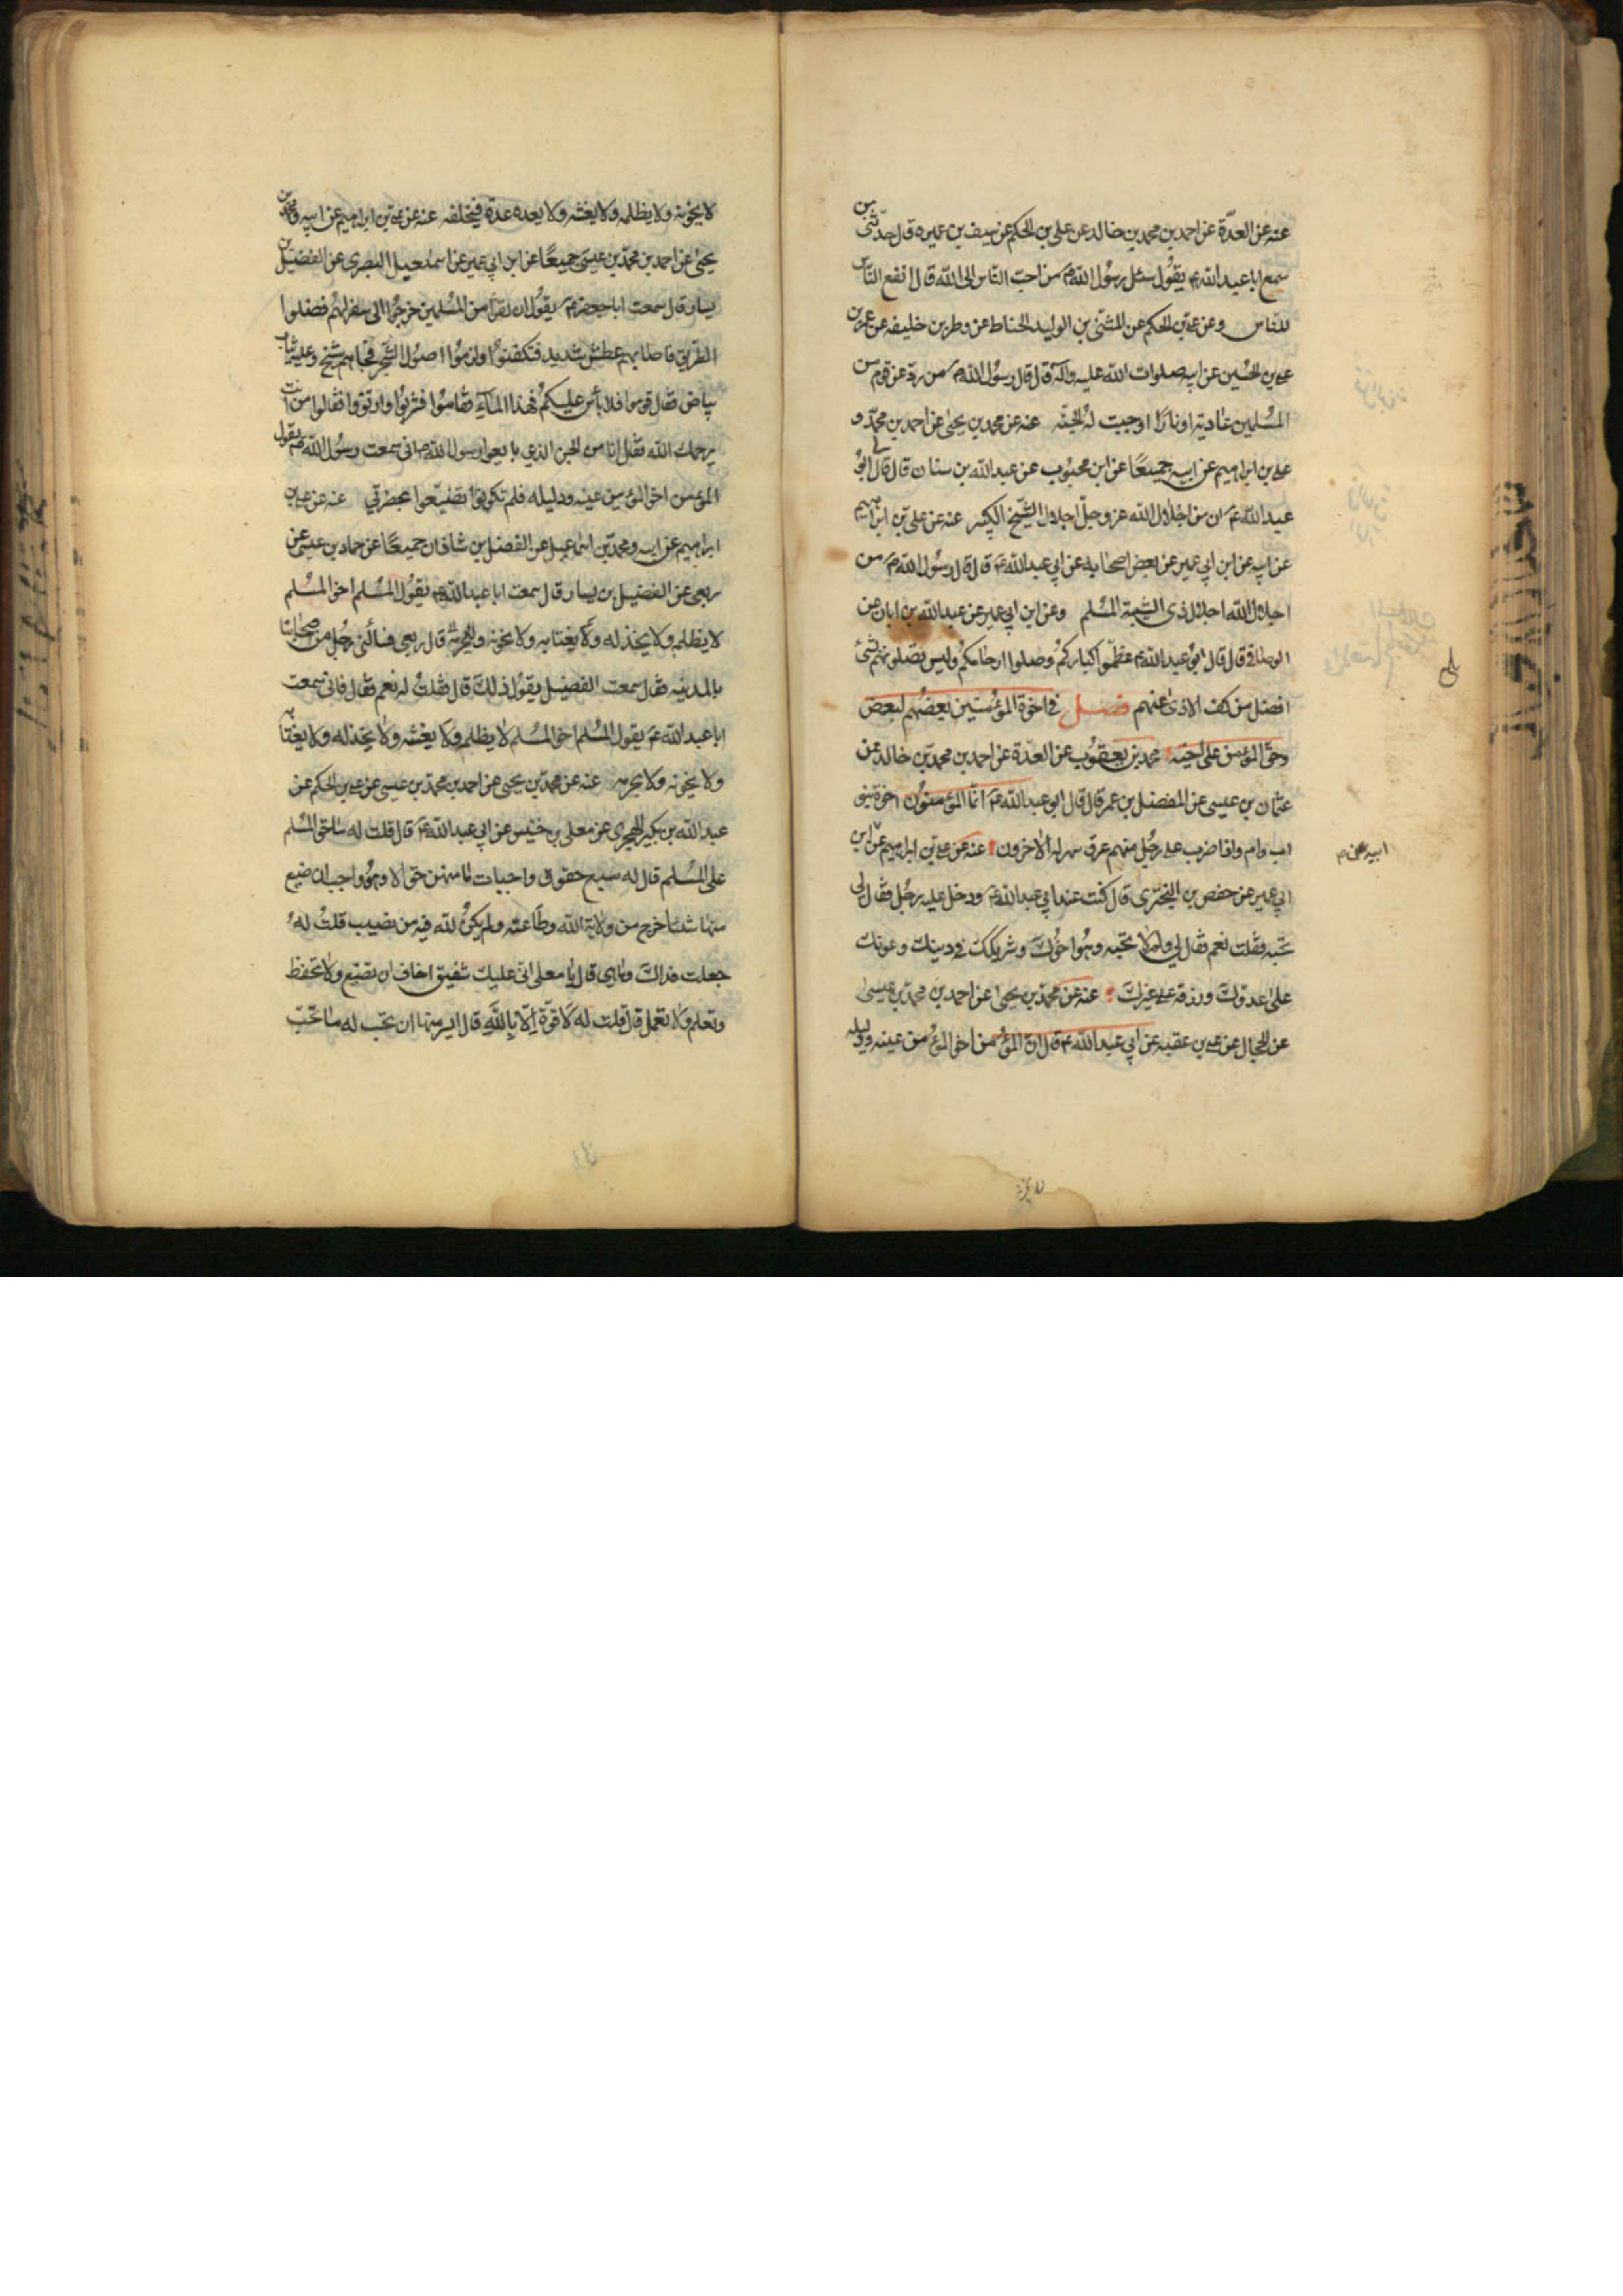 عنه عن العدّة عن احمد بن محمد بن خالد عن علي بن الحكم عن سيف بن عميرة قال حدّثنى من
سمع ابا عبد الله ع يقول سئل رسول الله ص من احبّ الناس الى الله قال انفع الناس
للنّاس وعن علي بن الحكم عن المثنّى بن الوليد الحناط عن وطر بن خليفه عن عمر بن
علي بن الحسين عن ابيه صلوات الله عليه واله قال قال رسول الله ص من ردّ عن قوم من
المسلمين عادية او نارًا اوجبت له الجنّة عنه عن محمد بن يحيى عن احمد بن محمّد و
علي بن ابراهيم عن ابيه جميعًا عن ابن محبوب عن عبد الله بن سنان قال قال لي ابو
عبد الله ع ان من اجلال الله عز وجلّ اجلال الشّيخ الكبير عنه عن علي بن ابراهيم
عن ابيه عن ابن ابي عمير عن بعض اصحابه عن ابي عبد الله ع قال قال رسول الله ص من
اجلال الله اجلال ذى الشيبة المسلم وعن ابن ابي عمير عن عبد الله بن ابان عن
الوصافى قال قال ابو عبد الله ع عظّموا كباركم وصلوا ارحامكم وليس تصلونهم بشئ
افضل من كف الاذى عنهم فصل في اخوة المؤمنين بعضهم لبعض
وحقّ المؤمن على اخيه محمد بن يعقوب عن العدّة عن احمد بن محمد بن خالد عن
عثمان بن عيسى عن المفضل بن عمر قال قال ابو عبد الله ع انّما المؤمنون اخوة بنو
اب وام واذا ضرب على رجل منهم عرق سهر له الاخرون عنه عن علي بن ابراهيم عن ابن
ابيه عن
ابي عمير عن حفص بن البخترى قال كنت عند ابي عبد الله ع ودخل عليه رجل فقال لي
تحبّه فقلت نعم فقال لي ولم لا تحبه وهو اخوك وشريكك في دينك وعونك
على عدوّك ورزقه على غيرك عنه عن محمّد بن يحيى عن احمد بن محمّد بن عيسى
عن الحجال عن علي بن عقبه عن ابي عبد الله ع قال انّ المؤمن اخو المؤمن عينه ودليله
لا يخونه ولا يظلمه ولا يغشه ولا يعده عدة فيخلفه عنه عن علي بن ابراهيم عن ابيه ومحمد بن
يحيى عن احمد بن محمّد بن عيسى جميعًا عن ابن ابي عمير عن اسمعيل البصرى عن الفضيل بن
يسار قال سمعت ابا جعفر ع يقول ان نفرًا من المسلمين خرجوا الى سفر لهم فضلوا
الطريق فاصابهم عطش شديد فتكفنوا ولزموا اصول الشجر فجاءهم شيخ وعليه ثياب
بياض فقال قوموا فلا بأس عليكم فهذا الماء فقاموا فشربوا وارتووا فقالوا من انت
يرحمك الله فقال انا من الجن الذي بايعوا رسول الله ص انى سمعت رسول الله ص يقول
المؤمن اخو المؤمن عينه ودليله فلم تكونوا تضيّعوا بحضرتي عنه عن علي بن
ابراهيم عن ابيه ومحمد بن اسماعيل عن الفضل بن شاذان جميعًا عن حماد بن عيسى عن
ربعى عن الفضيل بن يسار قال سمعت ابا عبد الله ع يقول المسلم اخو المسلم
لا يظلمه ولا يخذله ولا يغتابه ولا يخونه ولا يحرمه قال ربعى فسألنى رجل من اصحابنا
بالمدينه فقال سمعت الفضيل يقول ذلك قال فقلت له نعم فقال فانى سمعت
ابا عبد الله ع يقول المسلم اخو المسلم لا يظلمه ولا يغشه ولا يخذله ولا يغتابه
ولا يخونه ولا يحرمه عنه عن محمّد بن يحيى عن احمد بن محمّد بن عيسى عن علي بن الحكم عن
عبد الله بن بكير الهجرى عن معلى بن خنيس عن ابي عبد الله ع قال قلت له ما حق المسلم
على المسلم قال له سبع حقوق واجبات ما منهن حق الا وهو واجب ان ضيع
منها شئا خرج من ولاية الله وطاعته ولم يكن لله فيه من نصيب قلت له
جعلت فداك وما هى قال يا معلى انّى عليك شفيق اخاف ان تضيع ولا تحفظ
وتعلم ولا تعمل قال قلت له لا قوّة الّا بالله قال ايسر منها ان تحب له ما تحبّ